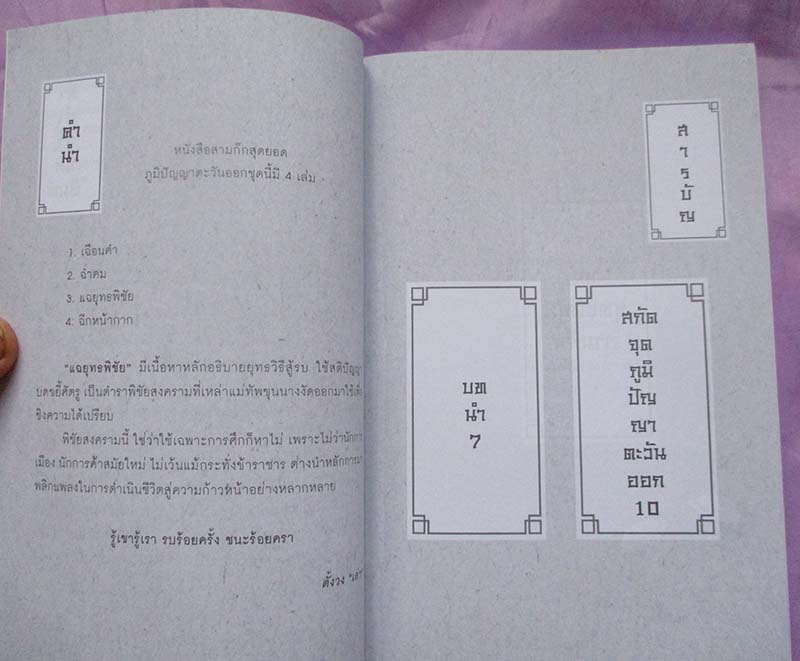 คำ
นำ
หนังสือสามก๊กสุดยอด
ภูมิปัญญาตะวันออกชุดนี้มี 4 เล่ม
1. เฉือนคำ
2. ฉ่ำคม
3. แฉยุทธพิชัย
4. ฉีกหน้ากาก
"แฉยุทธพิชัย" มีเนื้อหาหลักอธิบายยุทธวิธีสู้รบ ใช้สติปัญญา
บดขยี้ศัตรู เป็นตำราพิชัยสงครามที่เหล่าแม่ทัพขุนนางงัดออกมาใช้เพื่อ
ชิงความได้เปรียบ
พิชัยสงครามนี้ ใช่ว่าใช้เฉพาะการศึกก็หาไม่ เพราะไม่ว่านักการ
เมือง นักการค้าสมัยใหม่ ไม่เว้นแม้กระทั่งข้าราชาร ต่างนำหลักการมา
พลิกแพลงในการดำเนินชีวิตสู่ความก้าวหน้าอย่างหลากหลาย
รู้เขารู้เรา รบร้อยครั้ง ชนะร้อยครา
ตั้งวง
สารบัญ
บท
นำ
7
สกัด
จุด
ภูมิ
ปัญ
ญา
ตะวัน
ออก
10